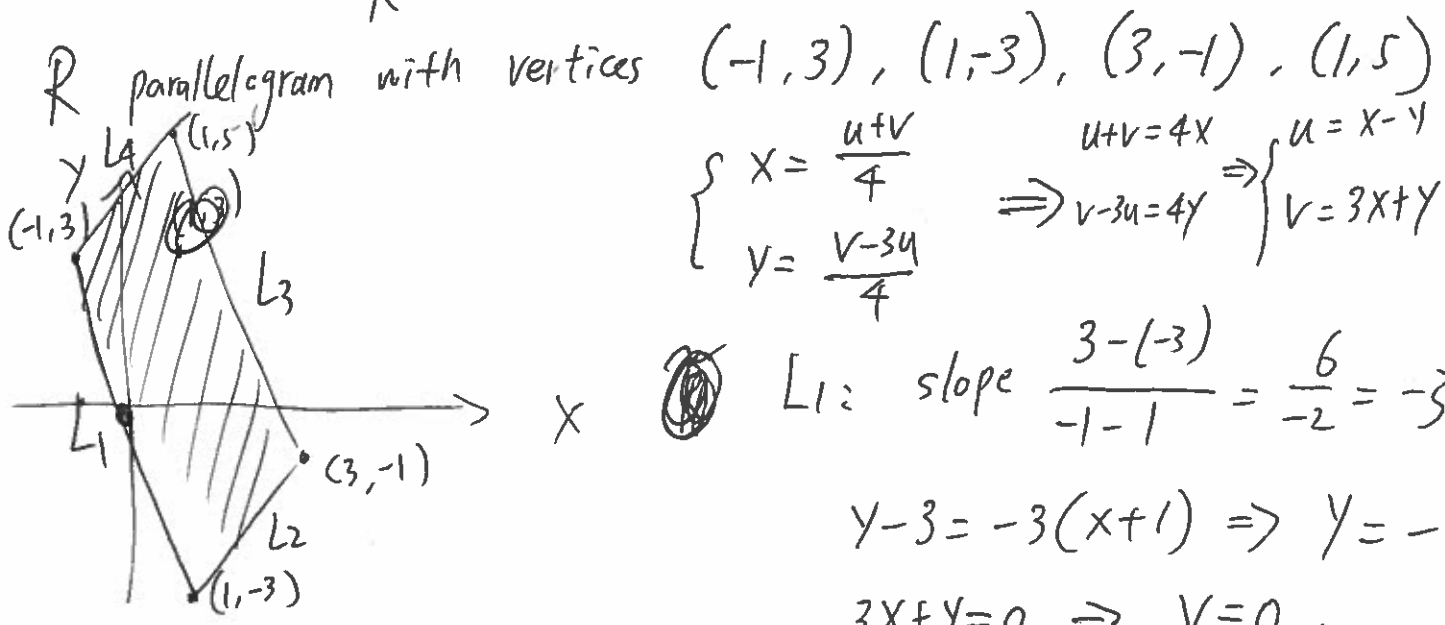 R
R parallelogram with vertices (-1,3), (1,-3), (3,-1), (1,5)
L4 (1,5)
Y
(-1,3)
L3
L1
X
(3,-1)
L2
(1,-3)
{ X = (u+v)/4
Y = (v-3u)/4
⇒ u+v=4X
v-3u=4Y
⇒ { u = X-Y
v = 3X+Y
L1: slope (3-(-3))/(-1-1) = 6/-2 = -3
Y-3=-3(X+1) ⇒ Y=-
3X+Y=0 ⇒ V=0